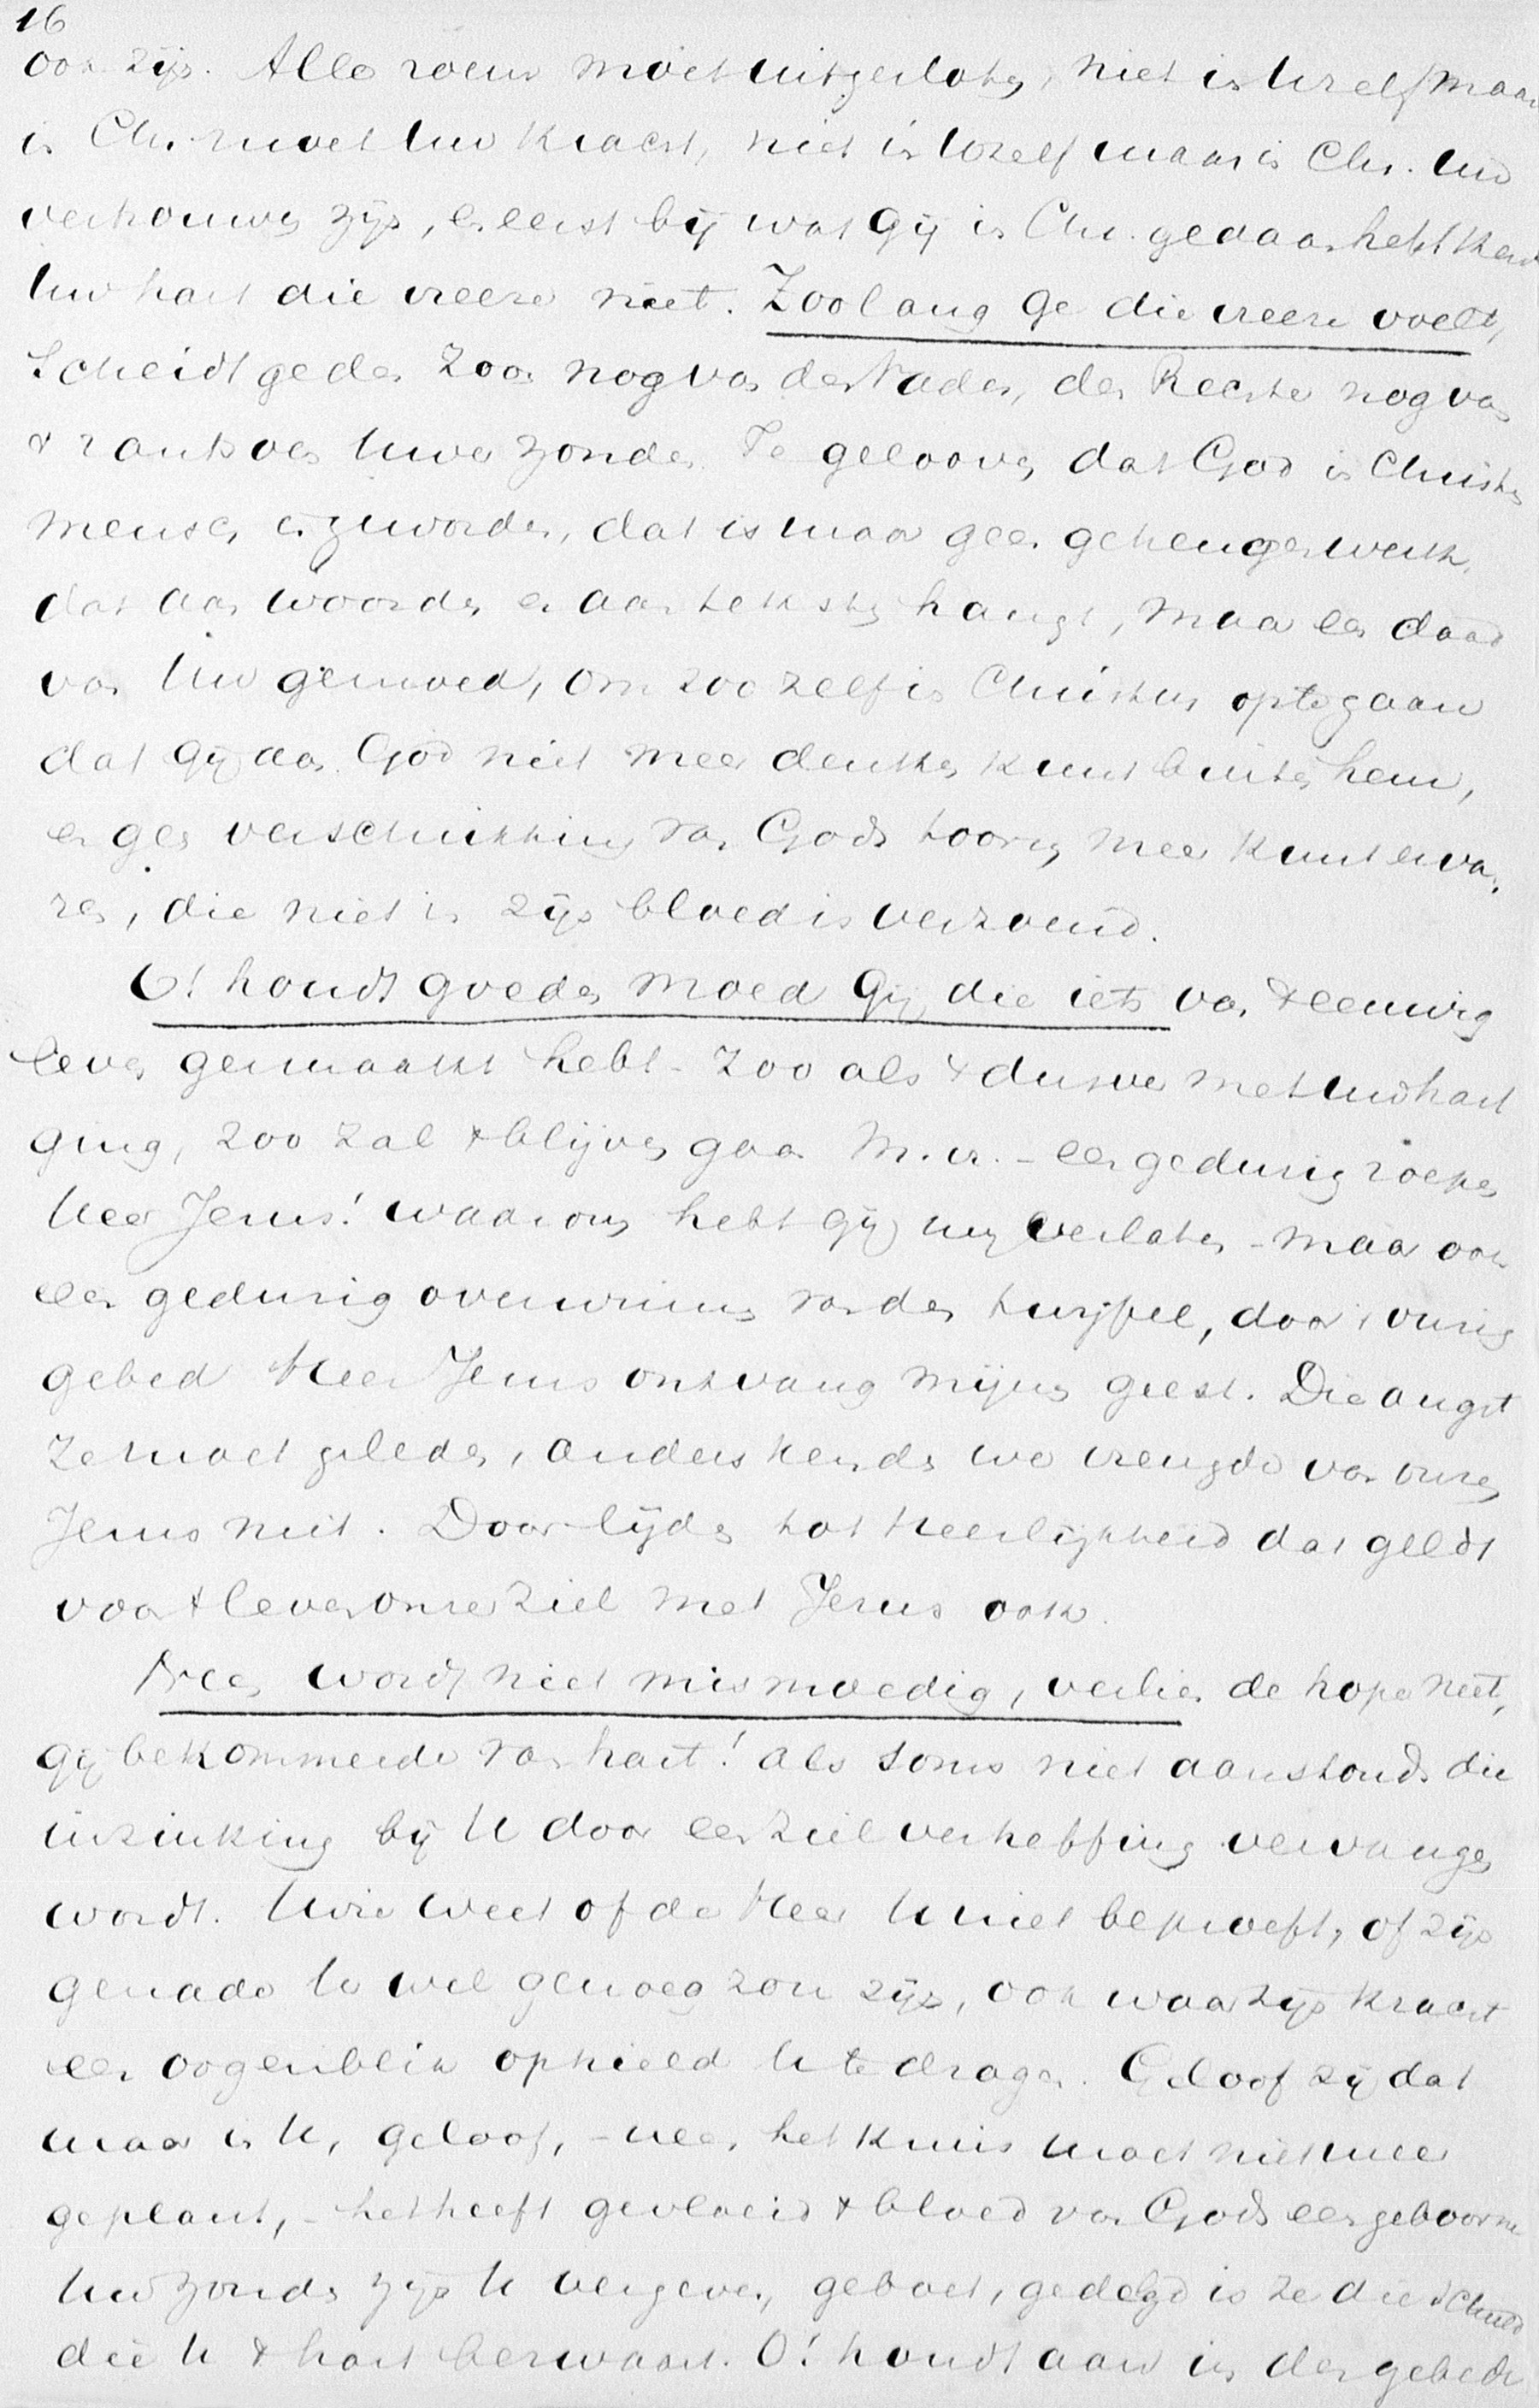 16
ook zijn. Alle roem moet uitgesloten, niet in Uzelf maar
in Chr. moet Uw kracht, niet in Uzelf maar in Chr. Uw
vertrouwen zijn, en eerst bij wat gij in Chr. gedaan hebt kent
Uw hart die vreeze niet. Zoolang ge die vreeze voelt,
scheidt ge den Zoon nog van den Vader, den Rechter nog van
't rantsoen Uwer zonden. Te gelooven, dat God in Christus
mensch is geworden, dat is maar geen geheugenwerk,
dat aan woorden en aan teksten hangt, maar een daad
van Uw gemoed, om zoo zelf in Christus op te gaan
dat gij aan God niet meer denken kunt buiten hem,
en geen verschrikking van Gods toorn meer kunt erva-
ren, die niet in zijn bloed is verzoend.
O! houdt goeden moed Gij, die iets van 't eeuwig
leven gesmaakt hebt - Zoo als 't dusver met Uw hart
ging, zoo zal 't blijven gaan M. vr. - een gedurig roepen
Heer Jezus! waarom hebt gij mij verlaten - maar ook
een gedurig overwinnen van den twijfel, door 't vurig
gebed Heer Jezus ontvang mijnen geest. Die angst
ze moet geleden, anders kenden we vreugde van onzen
Jezus niet. Door lijden tot Heerlijkheid dat geldt
voor 't leven onzer ziel met Jezus ook.
Neen wordt niet mismoedig, verlies de hope niet,
gij bekommerde van hart! als soms niet aanstonds die
inzinking bij U door een zielverheffing vervangen
wordt. Wie weet of de Heer U niet beproeft, of zijn
genade U wel genoeg zou zijn, ook waar zijn kracht
een oogenblik ophield U te dragen. Geloof zij dat
maar in U, geloof, - neen, het kruis moet niet meer
geplant, - het heeft gevloeid 't bloed van Gods eengeboorne
Uw zonden zijn U vergeven, geboet, gedelgd is ze die schuld
die U 't hart bezwaart. O! houdt aan in den gebede